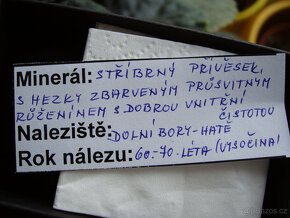 Minerál: STŘÍBRNÝ PŘÍVĚSEK,
S HEZKY ZBARVENÝM PRŮSVITNÝM
RŮŽENÍNEM S DOBROU VNITŘNÍ
ČISTOTOU
Naleziště: DOLNÍ BORY-HATĚ
Rok nálezu: 60.-70. LÉTA (VYSOČINA)